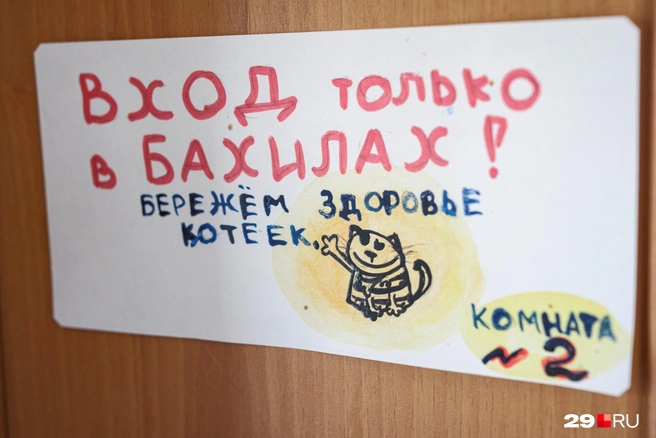 ВХОД ТОЛЬКО
В БАХИЛАХ!
БЕРЕЖЁМ ЗДОРОВЬЕ
КОТЕЕК.
КОМНАТА
~ 2
29.RU